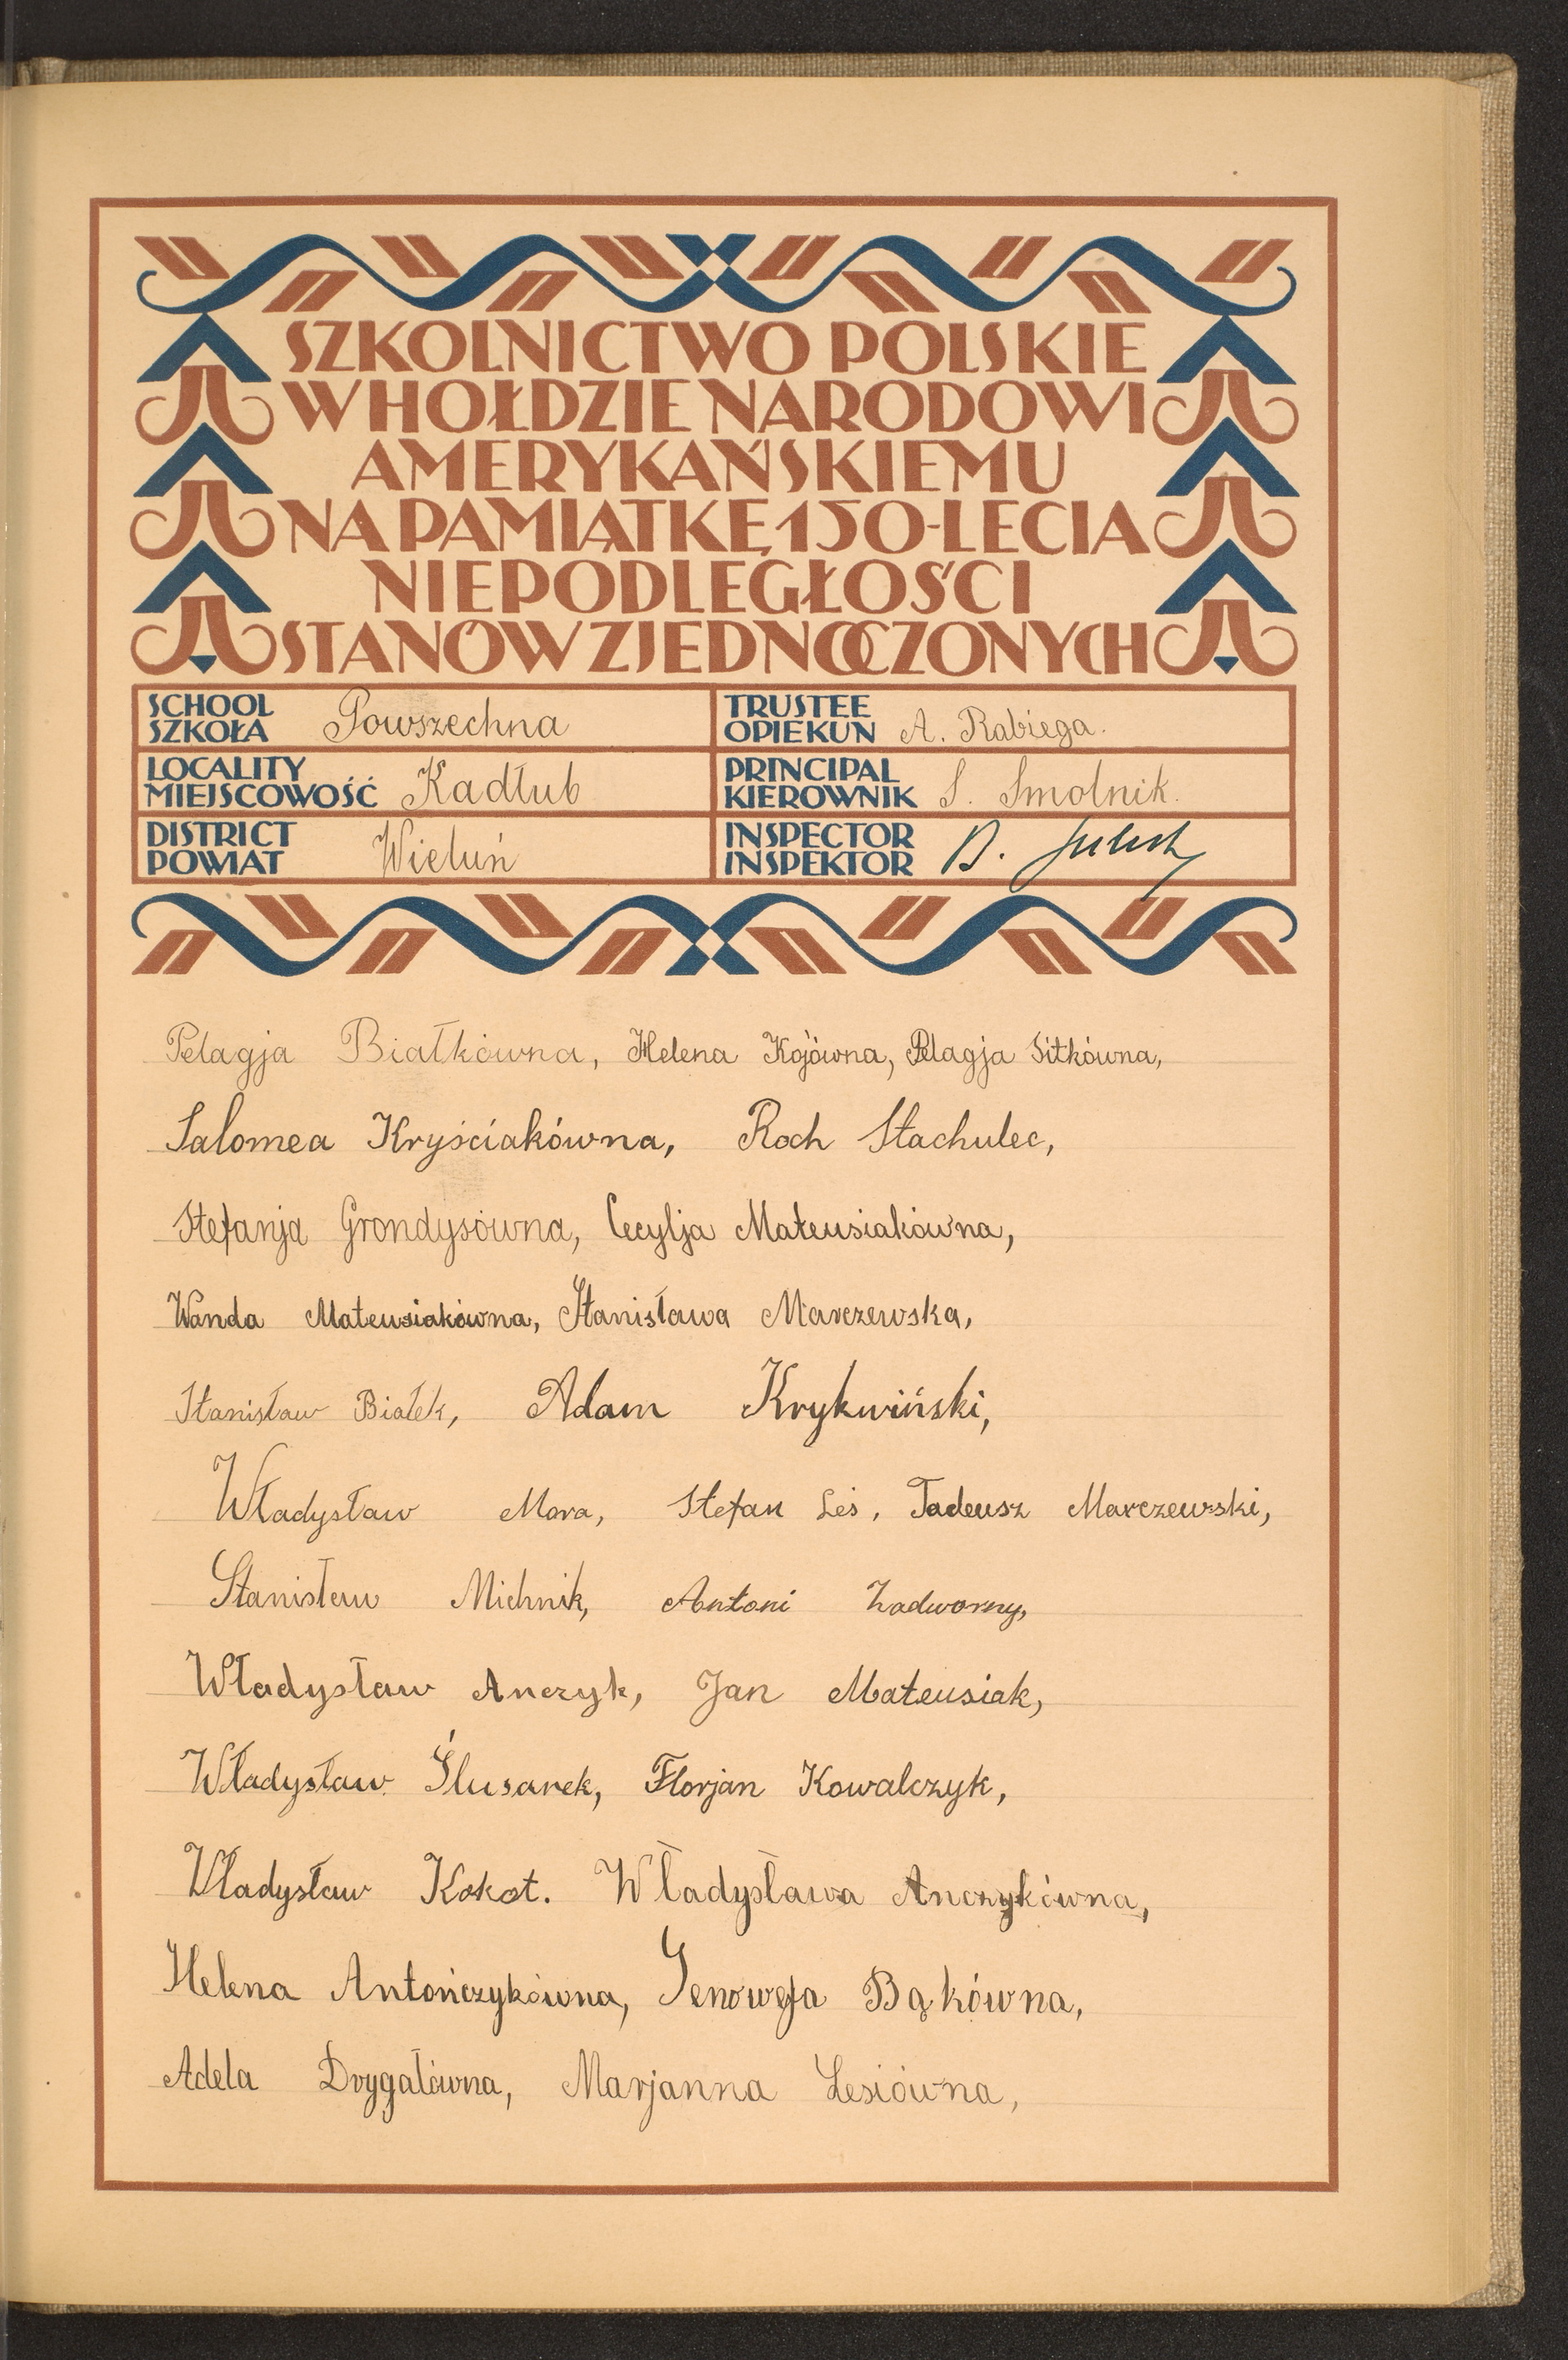 SZKOLNICTWO POLSKIE
W HOŁDZIE NARODOWI
AMERYKAŃSKIEMU
NA PAMIĄTKĘ 150-LECIA
NIEPODLEGŁOŚCI
STANÓW ZJEDNOCZONYCH
SCHOOL
SZKOŁA Powszechna
TRUSTEE
OPIEKUN A. Rabiega.
LOCALITY
MIEJSCOWOŚĆ Kadłub
PRINCIPAL
KIEROWNIK S. Smolnik.
DISTRICT
POWIAT Wieluń
INSPECTOR
INSPEKTOR B.
Pelagja Białkówna, Helena Kojówna, Pelagja Sitkówna,
Salomea Kryściakówna, Roch Stachulec,
Stefanja Grondysówna, Cecylja Mateusiakówna,
Wanda Mateusiakówna, Stanisława Marczewska,
Stanisław Białek, Adam Krykwiński,
Władysław Mora, Stefan Leś, Tadeusz Marczewski,
Stanisław Michnik, Antoni Zadworny,
Władysław Anczyk, Jan Mateusiak,
Władysław Ślusarek, Florjan Kowalczyk,
Władysław Kokot. Władysława Anczykówna,
Helena Antończykówna, Genowefa Bąkówna,
Adela Drygałówna, Marjanna Lesiówna,